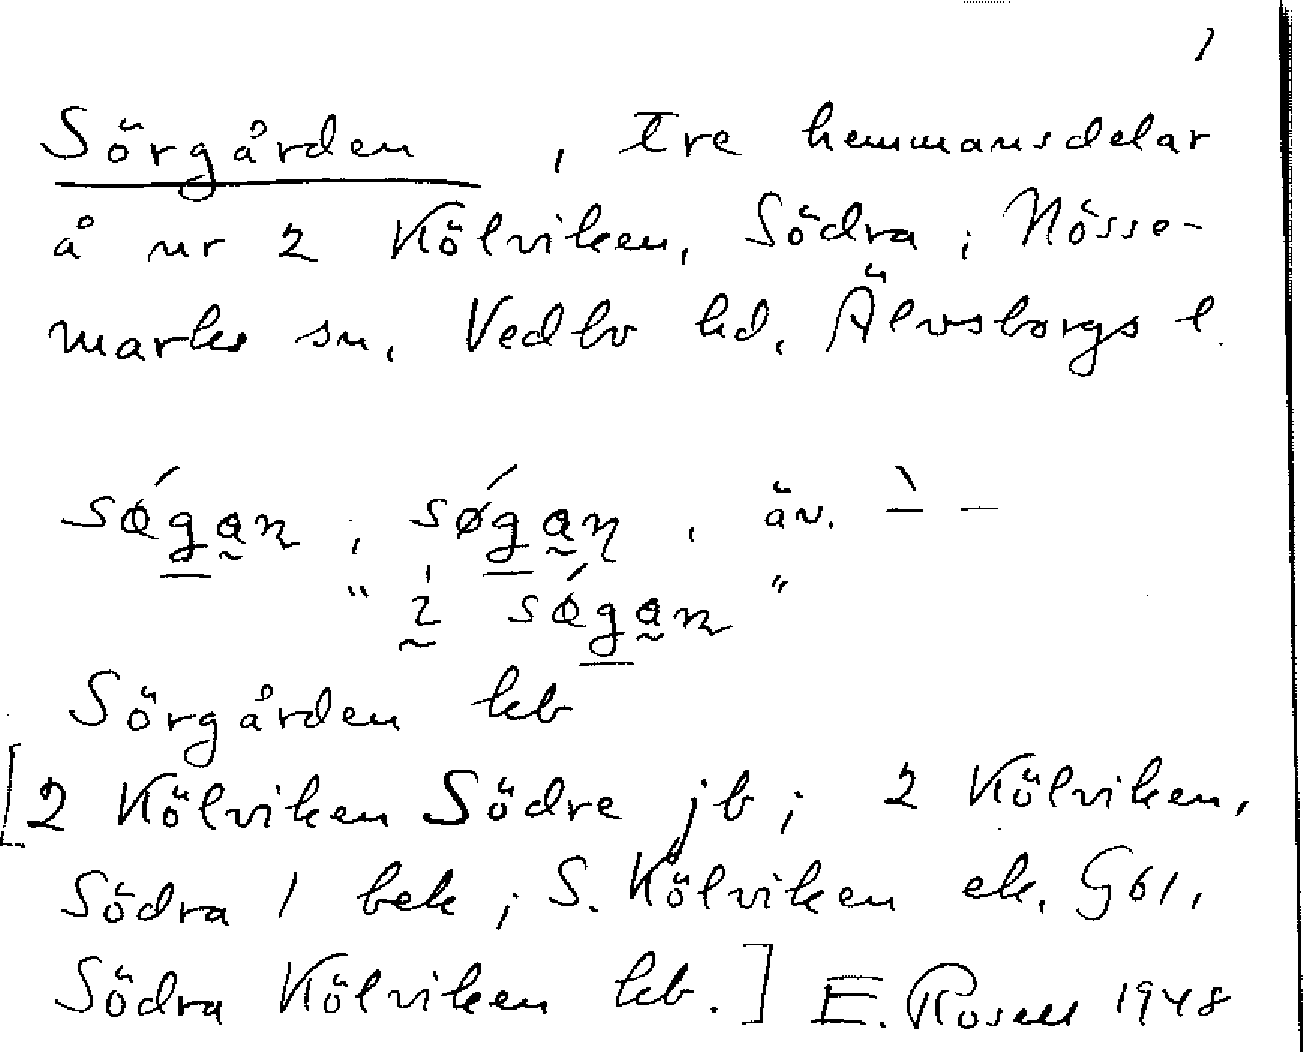 1
Sörgården, tre hemmansdelar
å nr 2 Kölviken, Södra; Nösse-
marks sn, Vedbo hd, Älvsborgs l.
"i
Sörgården kb
[2 Kölviken Södre jb; 2 Kölviken,
Södra 1 bek; S. Kölviken ek. G61,
Södra Kölviken kb.] E. Rosell 1948